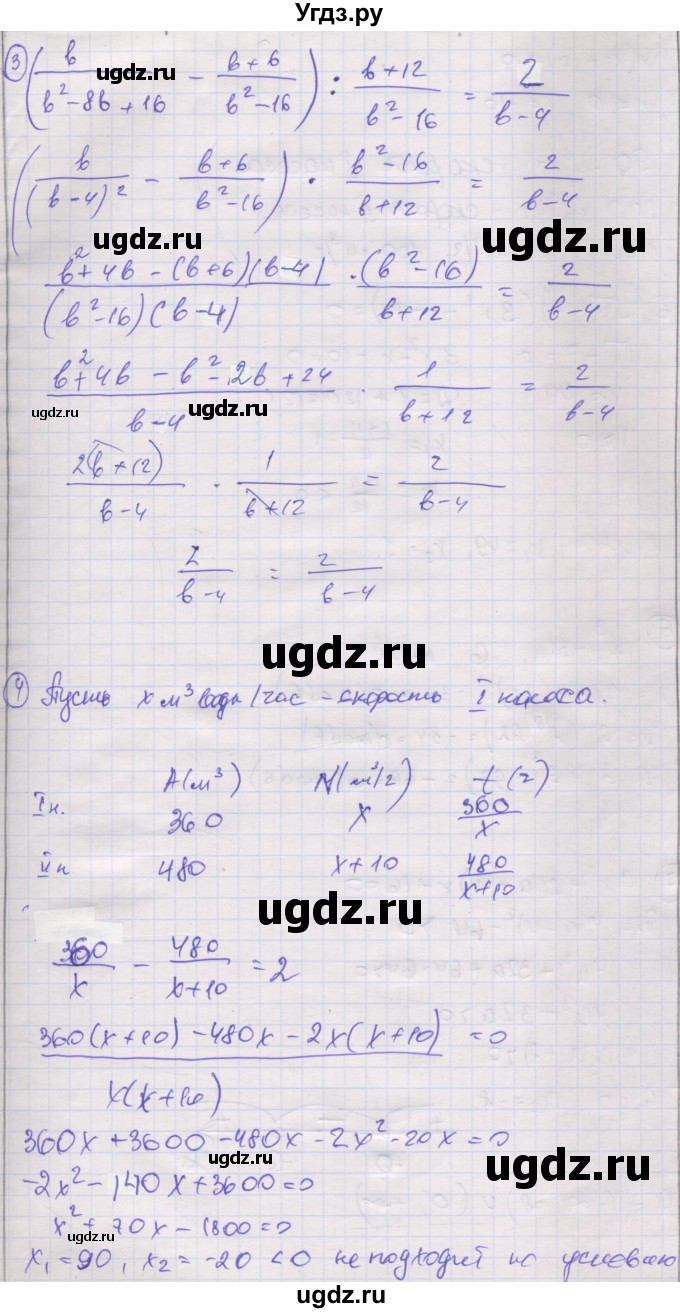 Угдз.ру
3 (b/(b²-8b+16) - (b+6)/(b²-16)) : (b+12)/(b²-16) = 2/(b-4)
ugdz.ru
(b/(b-4)² - (b+6)/(b²-16)) · (b²-16)/(b+12) = 2/(b-4)
ugdz.ru
ugdz.ru
(b²+4b-(b+6)(b-4))/((b²-16)(b-4)) · (b²-16)/(b+12) = 2/(b-4)
(b²+4b-b²-2b+24)/(b-4) · 1/(b+12) = 2/(b-4)
ugdz.ru
ugdz.ru
2(b+12)/(b-4) · 1/(b+12) = 2/(b-4)
2/(b-4) = 2/(b-4)
ugdz.ru
4 Пусть x м³ воды/час - скорость I насоса.
ugdz.ru
A(м³) N(м³/г) t(г)
Iн. 360 x 360/x
IIн 480 x+10 480/(x+10)
ugdz.ru
360/x - 480/(x+10) = 2
(360(x+10)-480x-2x(x+10))/(x(x+10)) = 0
360x+3600-480x-2x²-20x=0
ugdz.ru
-2x²-140x+3600=0
x²+70x-1800=0
ugdz.ru
x₁=90, x₂=-20<0 не подходит по условию
ugdz.ru